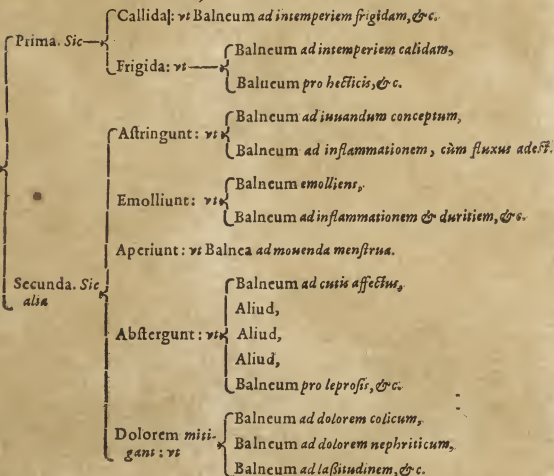 Callida: vt Balneum ad intemperiem frigidam, &c.
Prima. Sic
Frigida: vt
Balneum ad intemperiem calidam,
Balneum pro hecticis, &c.
Astringunt: vt
Balneum ad iuuandum conceptum,
Balneum ad inflammationem, cùm fluxus adest.
Emolliunt: vt
Balneum emolliens,
Balneum ad inflammationem & duritiem, &c.
Aperiunt: vt Balnea ad mouenda menstrua.
Secunda. Sic
alia
Abstergunt: vt
Balneum ad cutis affectus,
Aliud,
Aliud,
Aliud,
Balneum pro leprosis, &c.
Dolorem miti-
gant: vt
Balneum ad dolorem colicum,
Balneum ad dolorem nephriticum,
Balneum ad laßitudinem, &c.